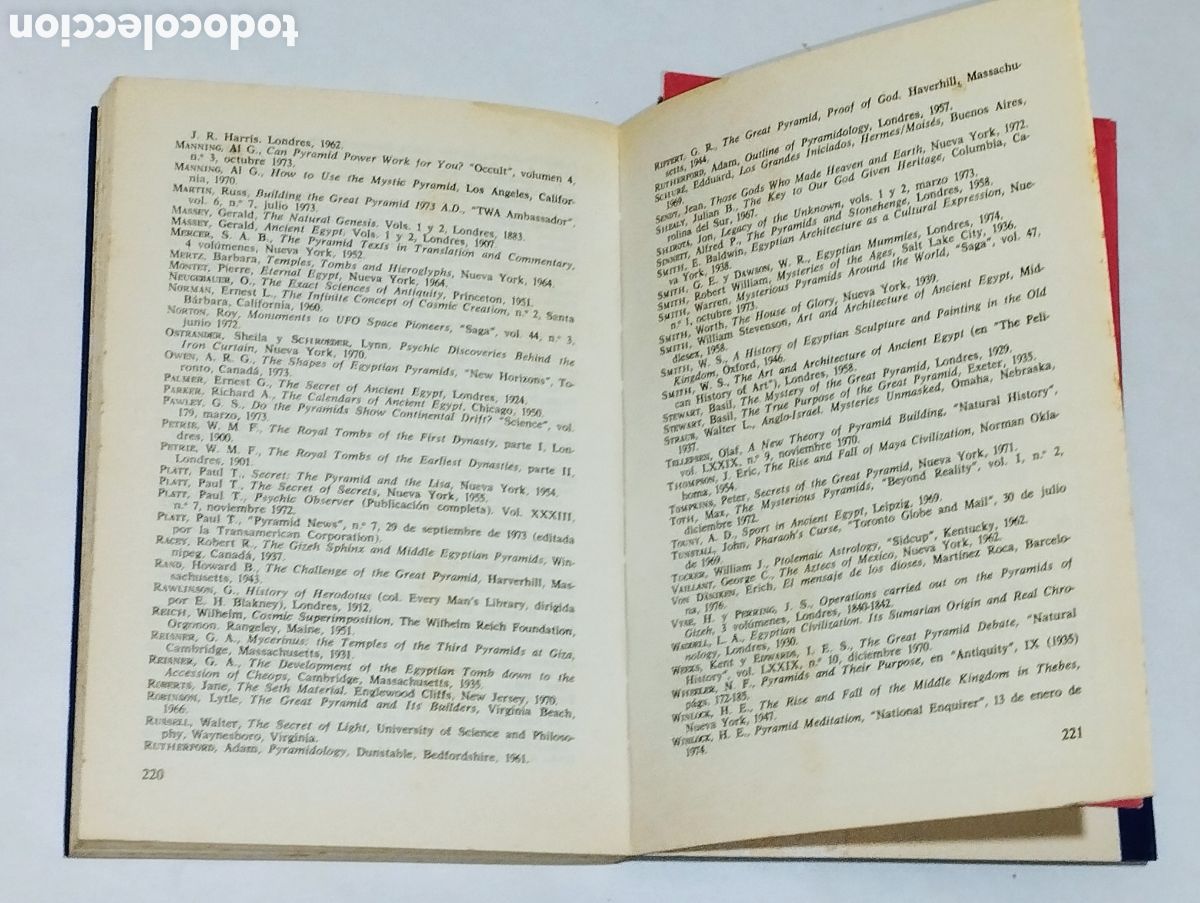 todocoleccion
J. R. Harris. Londres, 1962.
MANNING, Al G., Can Pyramid Power Work for You? "Occult", volumen 4,
n.º 3, octubre 1973.
MANNING, Al G., How to Use the Mystic Pyramid, Los Angeles, Califor-
nia, 1970.
MARTIN, Russ, Building the Great Pyramid 1973 A.D., "TWA Ambassador",
vol. 6, n.º 7, julio 1973.
MASSEY, Gerald, The Natural Genesis. Vols. 1 y 2, Londres, 1883.
MASSEY, Gerald, Ancient Egypt, Vols. 1 y 2, Londres, 1907.
MERCER, S. A. B., The Pyramid Texts in Translation and Commentary,
4 volúmenes, Nueva York, 1952.
MERTZ, Barbara, Temples, Tombs and Hieroglyphs, Nueva York, 1964.
MONTET, Pierre, Eternal Egypt, Nueva York, 1964.
NEUGEBAUER, O., The Exact Sciences of Antiquity, Princeton, 1951.
NORMAN, Ernest L., The Infinite Concept of Cosmic Creation, n.º 2, Santa
Bárbara, California, 1960.
NORTON, Roy, Monuments to UFO Space Pioneers, "Saga", vol. 44, n.º 3,
junio 1972.
OSTRANDER, Sheila y SCHROEDER, Lynn, Psychic Discoveries Behind the
Iron Curtain, Nueva York, 1970.
OWEN, A. R. G., The Shapes of Egyptian Pyramids, "New Horizons", To-
ronto, Canadá, 1973.
PALMER, Ernest G., The Secret of Ancient Egypt, Londres, 1924.
PARKER, Richard A., The Calendars of Ancient Egypt, Chicago, 1950.
PAWLEY, G. S., Do the Pyramids Show Continental Drift? "Science", vol.
179, marzo, 1973
PETRIE, W. M. F., The Royal Tombs of the First Dynasty, parte I, Lon-
dres, 1900.
PETRIE, W. M. F., The Royal Tombs of the Earliest Dynasties, parte II,
Londres, 1901.
PLATT, Paul T., Secret: The Pyramid and the Lisa, Nueva York, 1954.
PLATT, Paul T., The Secret of Secrets, Nueva York, 1955.
PLATT, Paul T., Psychic Observer (Publicación completa). Vol. XXXIII,
n.º 7, noviembre 1972.
PLATT, Paul T., "Pyramid News", n.º 7, 29 de septiembre de 1973 (editada
por la Transamerican Corporation).
RACEY, Robert R., The Gizeh Sphinx and Middle Egyptian Pyramids, Win-
nipeg, Canadá, 1937.
RAND, Howard B., The Challenge of the Great Pyramid, Harverhill, Mas-
sachusetts, 1943.
RAWLINSON, G., History of Herodotus (col. Every Man's Library, dirigida
por E. H. Blakney), Londres, 1912.
REICH, Wilhelm, Cosmic Superimposition, The Wilhelm Reich Foundation,
Orgonon, Rangeley, Maine, 1951.
REISNER, G. A., Mycerinus: the Temples of the Third Pyramids at Giza,
Cambridge, Massachusetts, 1931.
REISNER, G. A., The Development of the Egyptian Tomb down to the
Accession of Cheops, Cambridge, Massachusetts, 1935.
ROBERTS, Jane, The Seth Material. Englewood Cliffs, New Jersey, 1970.
ROBINSON, Lytle, The Great Pyramid and Its Builders, Virginia Beach,
1966.
RUSSELL, Walter, The Secret of Light, University of Science and Philoso-
phy, Waynesboro, Virginia.
RUTHERFORD, Adam, Pyramidology, Dunstable, Bedfordshire, 1961.
220
RIFFERT, G. R., The Great Pyramid, Proof of God. Haverhill, Massachu-
setts, 1944.
RUTHERFORD, Adam, Outline of Pyramidology, Londres, 1957.
SCHURÉ, Edduard, Los Grandes Iniciados, Hermes/Moisés, Buenos Aires,
1969.
SENDY, Jean, Those Gods Who Made Heaven and Earth, Nueva York, 1972.
SHEALY, Julian B., The Key to Our God Given Heritage, Columbia, Ca-
rolina del Sur, 1967.
SHIROTA, Jon, Legacy of the Unknown, vols. 1 y 2, marzo 1973.
SENNETT, Alfred P., The Pyramids and Stonehenge, Londres, 1958.
SMITH, E. Baldwin, Egyptian Architecture as a Cultural Expression, Nue-
va York, 1938.
SMITH, G. E. y DAWSON, W. R., Egyptian Mummies, Londres, 1974.
SMITH, Robert William, Mysteries of the Ages, Salt Lake City, 1936.
SMITH, Warren, Mysterious Pyramids Around the World, "Saga", vol. 47,
n.º 1, octubre 1973.
SMITH, Worth, The House of Glory, Nueva York, 1939.
SMITH, William Stevenson, Art and Architecture of Ancient Egypt, Mid-
dlesex, 1958.
SMITH, W. S., A History of Egyptian Sculpture and Painting in the Old
Kingdom, Oxford, 1946.
SMITH, W. S., The Art and Architecture of Ancient Egypt (en "The Peli-
can History of Art"), Londres, 1958.
STEWART, Basil, The Mystery of the Great Pyramid, Londres, 1929.
STEWART, Basil, The True Purpose of the Great Pyramid, Exeter, 1935.
STRAUB, Walter L., Anglo-Israel. Mysteries Unmasked, Omaha, Nebraska,
1937.
TELLEFSEN, Olaf, A New Theory of Pyramid Building, "Natural History",
vol. LXXIX, n.º 9, noviembre 1970.
THOMPSON, J. Eric, The Rise and Fall of Maya Civilization, Norman Okla-
homa, 1954.
TOMPKINS, Peter, Secrets of the Great Pyramid, Nueva York, 1971.
TOTH, Max, The Mysterious Pyramids, "Beyond Reality", vol. 1, n.º 2,
diciembre 1972.
TOUNY, A. D., Sport in Ancient Egypt, Leipzig, 1969.
TUNSTALL, John, Pharaoh's Curse, "Toronto Globe and Mail", 30 de julio
de 1969.
TUCKER, William J., Ptolemaic Astrology, "Sidcup", Kentucky, 1962.
VAILLANT, George C., The Aztecs of Mexico, Nueva York, 1962.
VON DÄNIKEN, Erich, El mensaje de los dioses, Martínez Roca, Barcelo-
na, 1976.
VYSE, H. y PERRING, J. S., Operations carried out on the Pyramids of
Gizeh, 3 volúmenes, Londres, 1840-1842.
WADDELL, L. A., Egyptian Civilization. Its Sumarian Origin and Real Chro-
nology, Londres, 1930.
WEEKS, Kent y EDWARDS, I. E. S., The Great Pyramid Debate, "Natural
History", vol. LXXIX, n.º 10, diciembre 1970.
WHEELER, N. F., Pyramids and Their Purpose, en "Antiquity", IX (1935)
págs. 172-185.
WINLOCK, H. E., The Rise and Fall of the Middle Kingdom in Thebes,
Nueva York, 1947.
WINLOCK, H. E., Pyramid Meditation, "National Enquirer", 13 de enero de
1974.
221